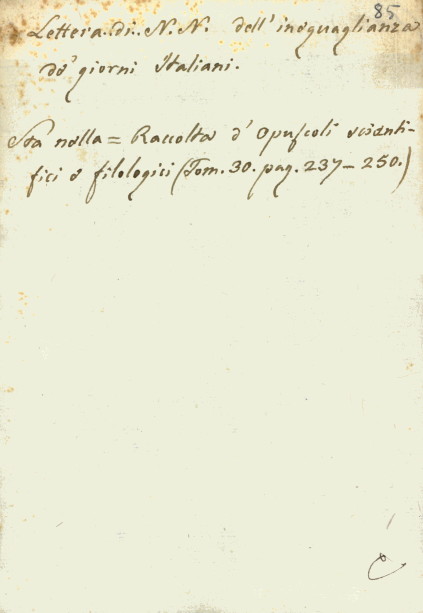 85
Lettera di N. N. dell'ineguaglianza
de' giorni Italiani.
Sta nella = Raccolta d'Opuscoli scienti-
fici e filologici (Tom. 30. pag. 237 – 250.)